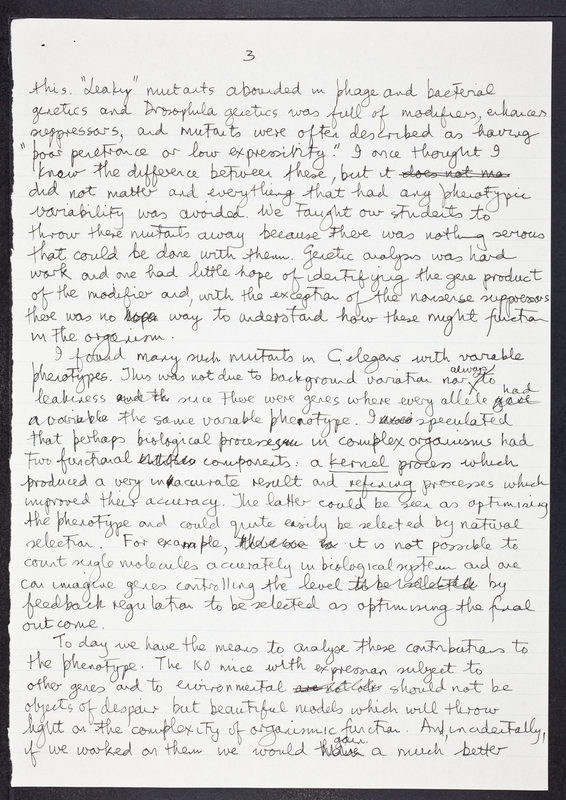 3
this. "Leaky" mutants abounded in phage and bacterial
genetics and Drosophila genetics was full of modifiers, enhancers
suppressors, and mutants were often described as having
"poor penetrance or low expressibity." I once thought I
knew the difference between these, but it does not ma
did not matter and everything that had any phenotypic
variability was avoided. We taught our students to
throw these mutants away because there was nothing serious
that could be done with them. Genetic analysis was hard
work and one had little hope of identifying the gene product
of the modifier and, with the exception of the nonsense suppressors
there was no hope way to understand how these might function
in the organism.
I found many such mutants in C. elegans with variable
phenotypes. This was not due to background variation nor always to
leakiness and th since there were genes where every allele gave had
a variable the same variable phenotype. I speculated
that perhaps biological processes in complex organisms had
two functional components: a kernel process which
produced a very inaccurate result and refining processes which
improved their accuracy. The latter could be seen as optimising
the phenotype and could quite easily be selected by natural
selection. For example, it is not possible to
count single molecules accurately in biological system and one
can imagine genes controlling the level to be selected by
feedback regulation to be selected as optimising the final
outcome.
Today we have the means to analyse these contributions to
the phenotype. The KO mice with expression subject to
other genes and to environmental are not should not be
objects of despair but beautiful models which will throw
light on the complexity of organismic function. And, incidentally,
if we worked on them we would have gain a much better